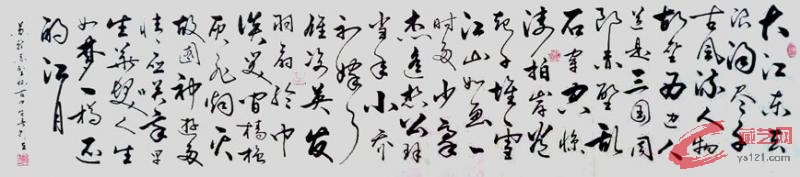 大江东去
浪淘尽千
古风流人物
故垒西边人
道是三国周
郎赤壁乱
石穿空惊
涛拍岸卷
起千堆雪
江山如画一
时多少豪
杰遥想公瑾
当年小乔
初嫁了
雄姿英发
羽扇纶巾
谈笑间樯橹
灰飞烟灭
故国神游多
情应笑我早
生华发人生
如梦一樽还
酹江月
艺网
ys121.com